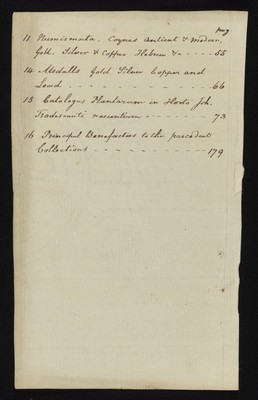 pag
13 Numismata, Coynes antient & modern,
Gold, Silver & Copper Hebrew &c - - - - 55
14 Medalls Gold Silver Copper and
Lead - - - - - - - - - - - - 66
15 Catalogus Plantarum in Horto Joh.
Tradescanti nascentium - - - - - - - 73
16 Principal Benefactors to the precedent
Collections - - - - - - - - - - 179